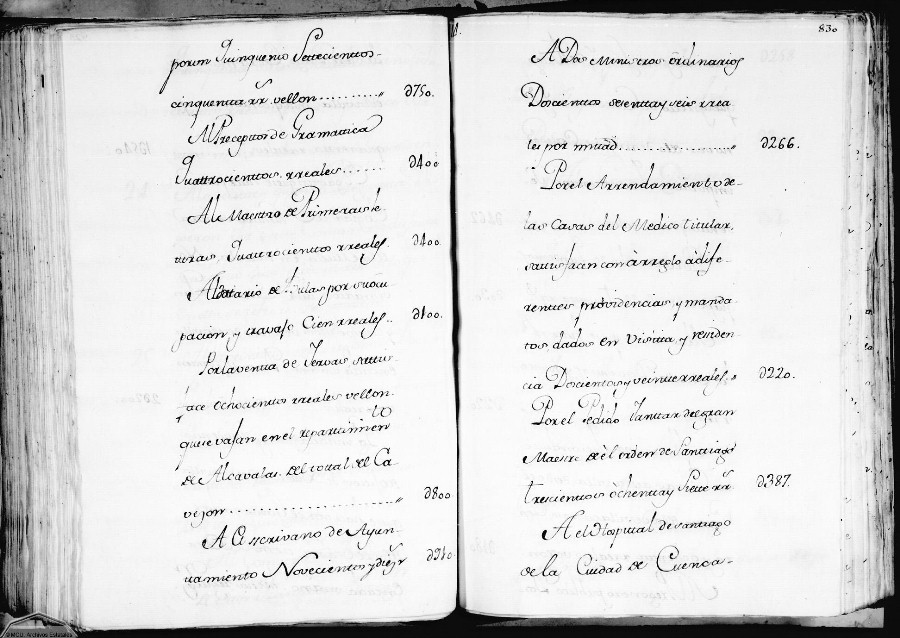 por un Quinquenio Settecienttos
cinquenta rr.s vellon .......... „ d750.
Al Preceptor de Gramatica
Quattrocienttos, rreales ....... d400
Al Maestro de Primeras le
turas, Quattrocienttos rreales d400.
Al Notario de por su ocu
pacion, y travajo Cien rreales.. d100.
Por la venta de Yervas sattis
face ochocienttos rreales vellon.
que revajan en el repartimien
to
de Alcavalas, del total del Ca
vezon .................... „ d800
A el escrivano de Ayun
tamiento Novecientos y diez rr d910.
830
A Dos Ministros ordinarios
Doscienttos sesenta y seis rrea
les por mitad .................. „ d266.
Por el Arrendamiento de
las Casas del Medico titular,
sattisfacen con arreglo a dife
rentes providencias, y manda
tos, dados en Visita, y residen
cia Doscientos y veinte rreales, „ d220.
Por el Pedido Tanttar del gran
Maestre de el orden de Santiago
trescienttos ochenta y Siette rr.s d387.
A el Hospital de Santiago
de la Ciudad de Cuenca
©MCD. Archivos Estatales